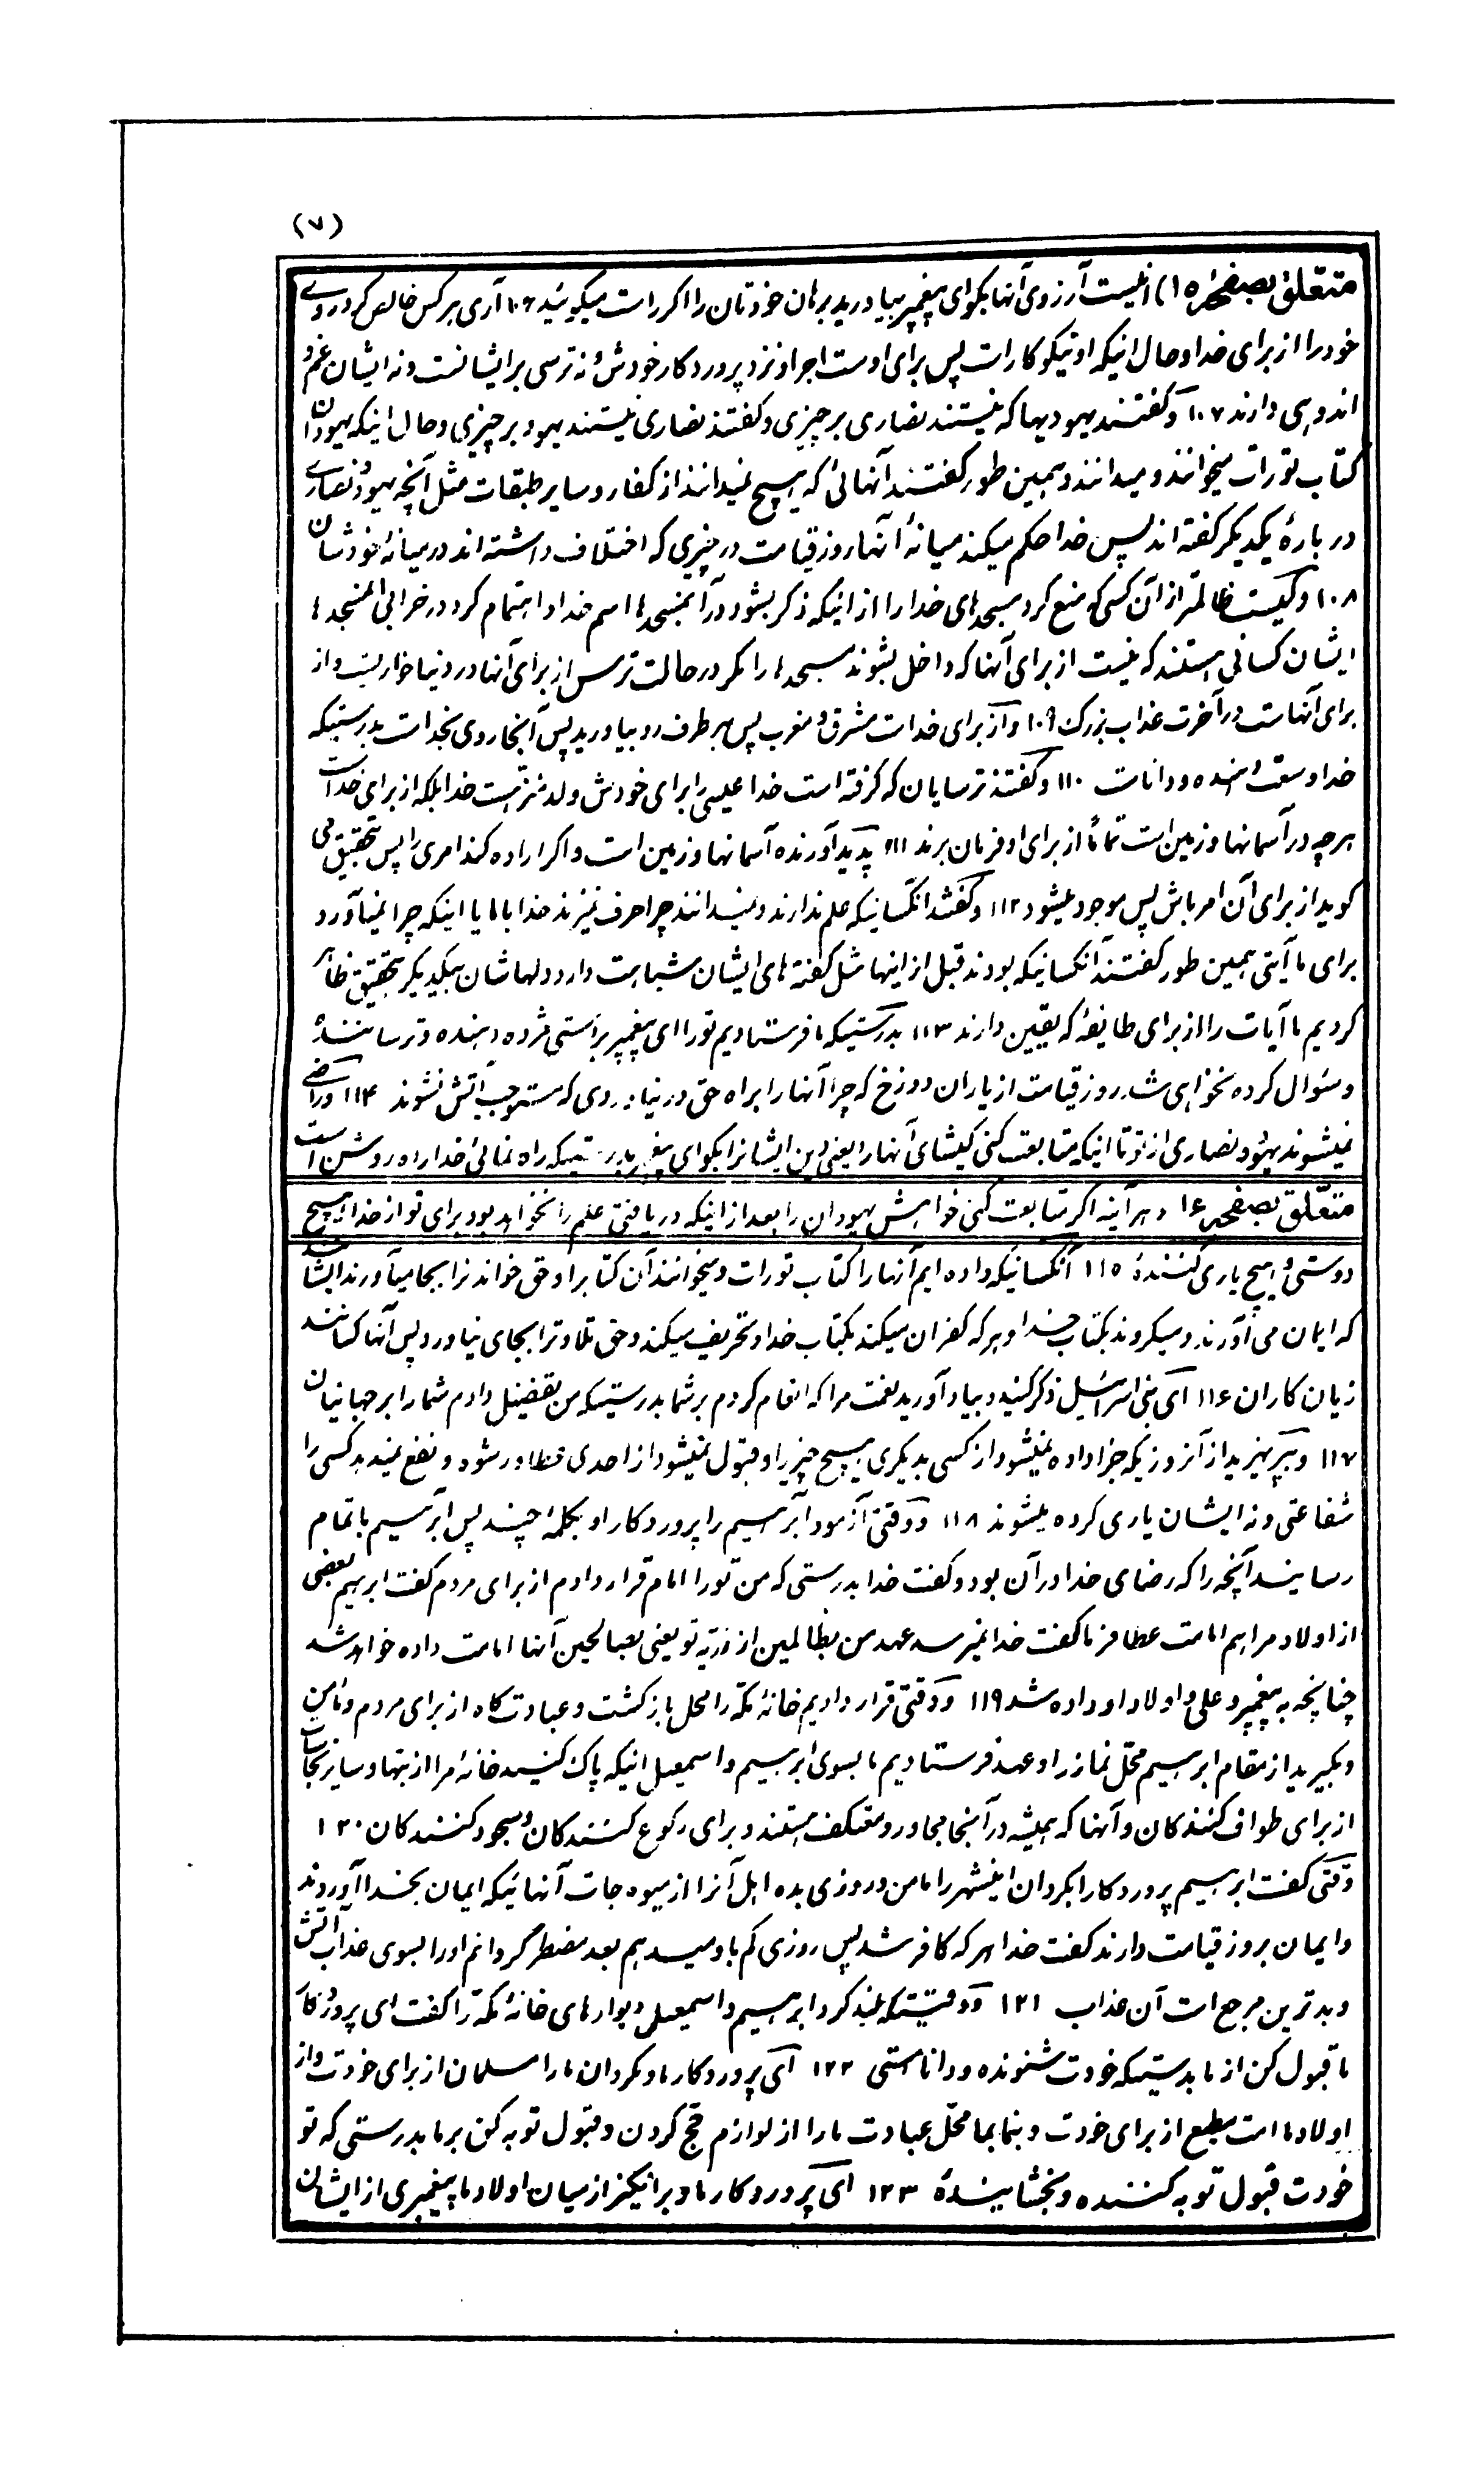 (۷)
متعلق بصفحه ۱۵) اینست آرزوی آنها بگو ای پیغمبر بیاورید برهان خودتان را اگر راست میگوئید ۱۰۶ آری هرکس خالص کرد روی
خود را از برای خدا و حال اینکه او نیکوکار است پس برای اوست اجر او نزد پروردگار خودش و نه ترسی بر ایشانست و نه ایشان غم و
اندوهی دارند ۱۰۷ و گفتند یهودیها که نیستند نصاری بر چیزی و گفتند نصاری نیستند یهود بر چیزی و حال اینکه یهودان
کتاب تورات میخوانند و میدانند و همین طور گفتند آنهائی که هیچ نمیدانند از کفار و سایر طبقات مثل آنچه یهود و نصاری
در بارهٔ یکدیگر گفته اند پس خدا حکم میکند میانهٔ آنها روز قیامت در چیزی که اختلاف داشته اند در میانهٔ خودشان
۱۰۸ و کیست ظالمتر از آن کسی که منع کرد مسجدهای خدا را از اینکه ذکر بشود در آنمسجدها اسم خدا و اهتمام کرد در خرابی المسجدها
ایشان کسانی هستند که نیست از برای آنها که داخل بشوند مسجدها را مگر در حالت ترس از برای آنها در دنیا خواریست و از
برای آنهاست در آخرت عذاب بزرک ۱۰۹ و از برای خداست مشرق و مغرب پس هر طرف رو بیاورید پس آنجا روی بخداست بدرستیکه
خدا وسعت دهنده و داناست ۱۱۰ و گفتند ترسایان که گرفته است خدا عیسی را برای خودش ولد منزهست خدا بلکه از برای خداست
هرچه در آسمانها و زمین است تماماً از برای او فرمان برند ۱۱۱ پدید آورنده آسمانها و زمین است و اگر اراده کند امری را پس بتحقیق می
گوید از برای آن امر باش پس موجود میشود ۱۱۲ و گفتند انکسانیکه علم ندارند و نمیدانند چرا حرف نمیزند خدا با ما یا اینکه چرا نمیآورد
برای ما آیتی همین طور گفتند آنکسانیکه بودند قبل از اینها مثل گفته های ایشان شباهت دارد دلهاشان بیکدیگر بتحقیق ظاهر
کردیم ما آیات را از برای طایفهٔ که یقین دارند ۱۱۳ بدرستیکه ما فرستادیم تو را ای پیغمبر براستی مژده دهنده و ترسانندهٔ
و سئوال کرده نخواهی شد روز قیامت از یاران دوزخ که چرا آنها را براه حق در نیاوردی که مستوجب آتش نشوند ۱۱۴ و راضی
نمیشوند یهود و نصاری از تو تا اینکه متابعت کنی کیشهای آنها را یعنی دین ایشانرا بگو ای پیغمبر بدرستیکه راه نمائی خدا راه روشن است
متعلق بصفحه ۱۶ و هرآینه اگر متابعت کنی خواهش یهودان را بعد از اینکه دریافتی علم را نخواهد بود برای تو از خدا هیچ
دوستی و هیچ یاری کنندهٔ ۱۱۵ انکسانیکه داده ایم آنها را کتاب تورات و میخوانند آن کتابرا و حق خواندنرا بجا میآورند ایشانند
که ایمان می آورند و میگروند بکتاب خدا و هرکه کفران میکند بکتاب خدا و تحریف میکند و حق تلاوترا بجای نیاورد پس آنها کسانند
زیان کاران ۱۱۶ ای بنی اسرائیل ذکر کنید و بیاد آورید نعمت مرا که انعام کردم بر شما بدرستیکه من تفضیل دادم شما را بر جهانیان
۱۱۷ و بپرهیزید از آنروزیکه جزا داده نمیشود از کسی بدیگری هیچ چیز را و قبول نمیشود از احدی خطا در شود و نفع نمیدهد کسی را
شفاعتی و نه ایشان یاری کرده میشوند ۱۱۸ و وقتی آزمود ابرهیم را پروردگار او بکلمهٔ چند پس ابرهیم باتمام
رسانید آنچه را که رضای خدا در آن بود و گفت خدا بدرستی که من تو را امام قرار دادم از برای مردم گفت ابرهیم بعضی
از اولاد مرا هم امامت عطا فرما گفت خدا نمیرسد عهد من بظالمین از ذریه تو یعنی بصالحین آنها امامت داده خواهد شد
چنانچه به پیغمبر و علی و اولاد او داده شد ۱۱۹ و وقتی قرار دادیم خانهٔ مکه را محل بازگشت و عبادت گاه از برای مردم و مأمن
و بگیرید از مقام ابرهیم محل نماز را و عهد فرستادیم ما بسوی ابرهیم و اسمعیل اینکه پاک کنید خانه مرا از بتها و سایر نجاسات
از برای طواف کنندکان و آنها که همیشه در آنجا مجاور و معتکف هستند و برای رکوع کنندکان و سجود کنندکان ۱۲۰
وقتی گفت ابرهیم پروردگارا بگردان اینشهر را مامن و روزی بده اهل آنرا از میوه جات آنهائیکه ایمان بخدا آوردند
و ایمان بروز قیامت دارند گفت خدا هرکه کافر شد پس روزی کم باو میدهم بعد مضطر گردانم او را بسوی عذاب آتش
و بدترین مرجع است آن عذاب ۱۲۱ و وقتیکه بلند کرد ابرهیم و اسمعیل دیوارهای خانهٔ مکه را گفت ای پروردگار
ما قبول کن از ما بدرستیکه خودت شنونده و دانا هستی ۱۲۲ ای پروردگار ما و بگردان ما را مسلمان از برای خودت و از
اولاد ما امت مطیع از برای خودت و بنما بما محل عبادت ما را از لوازم حج کردن و قبول توبه کن بر ما بدرستی که تو
خودت قبول توبه کننده و بخشاینندهٔ ۱۲۳ ای پروردگار ما و برانگیز از میان اولاد ما پیغمبری از ایشان